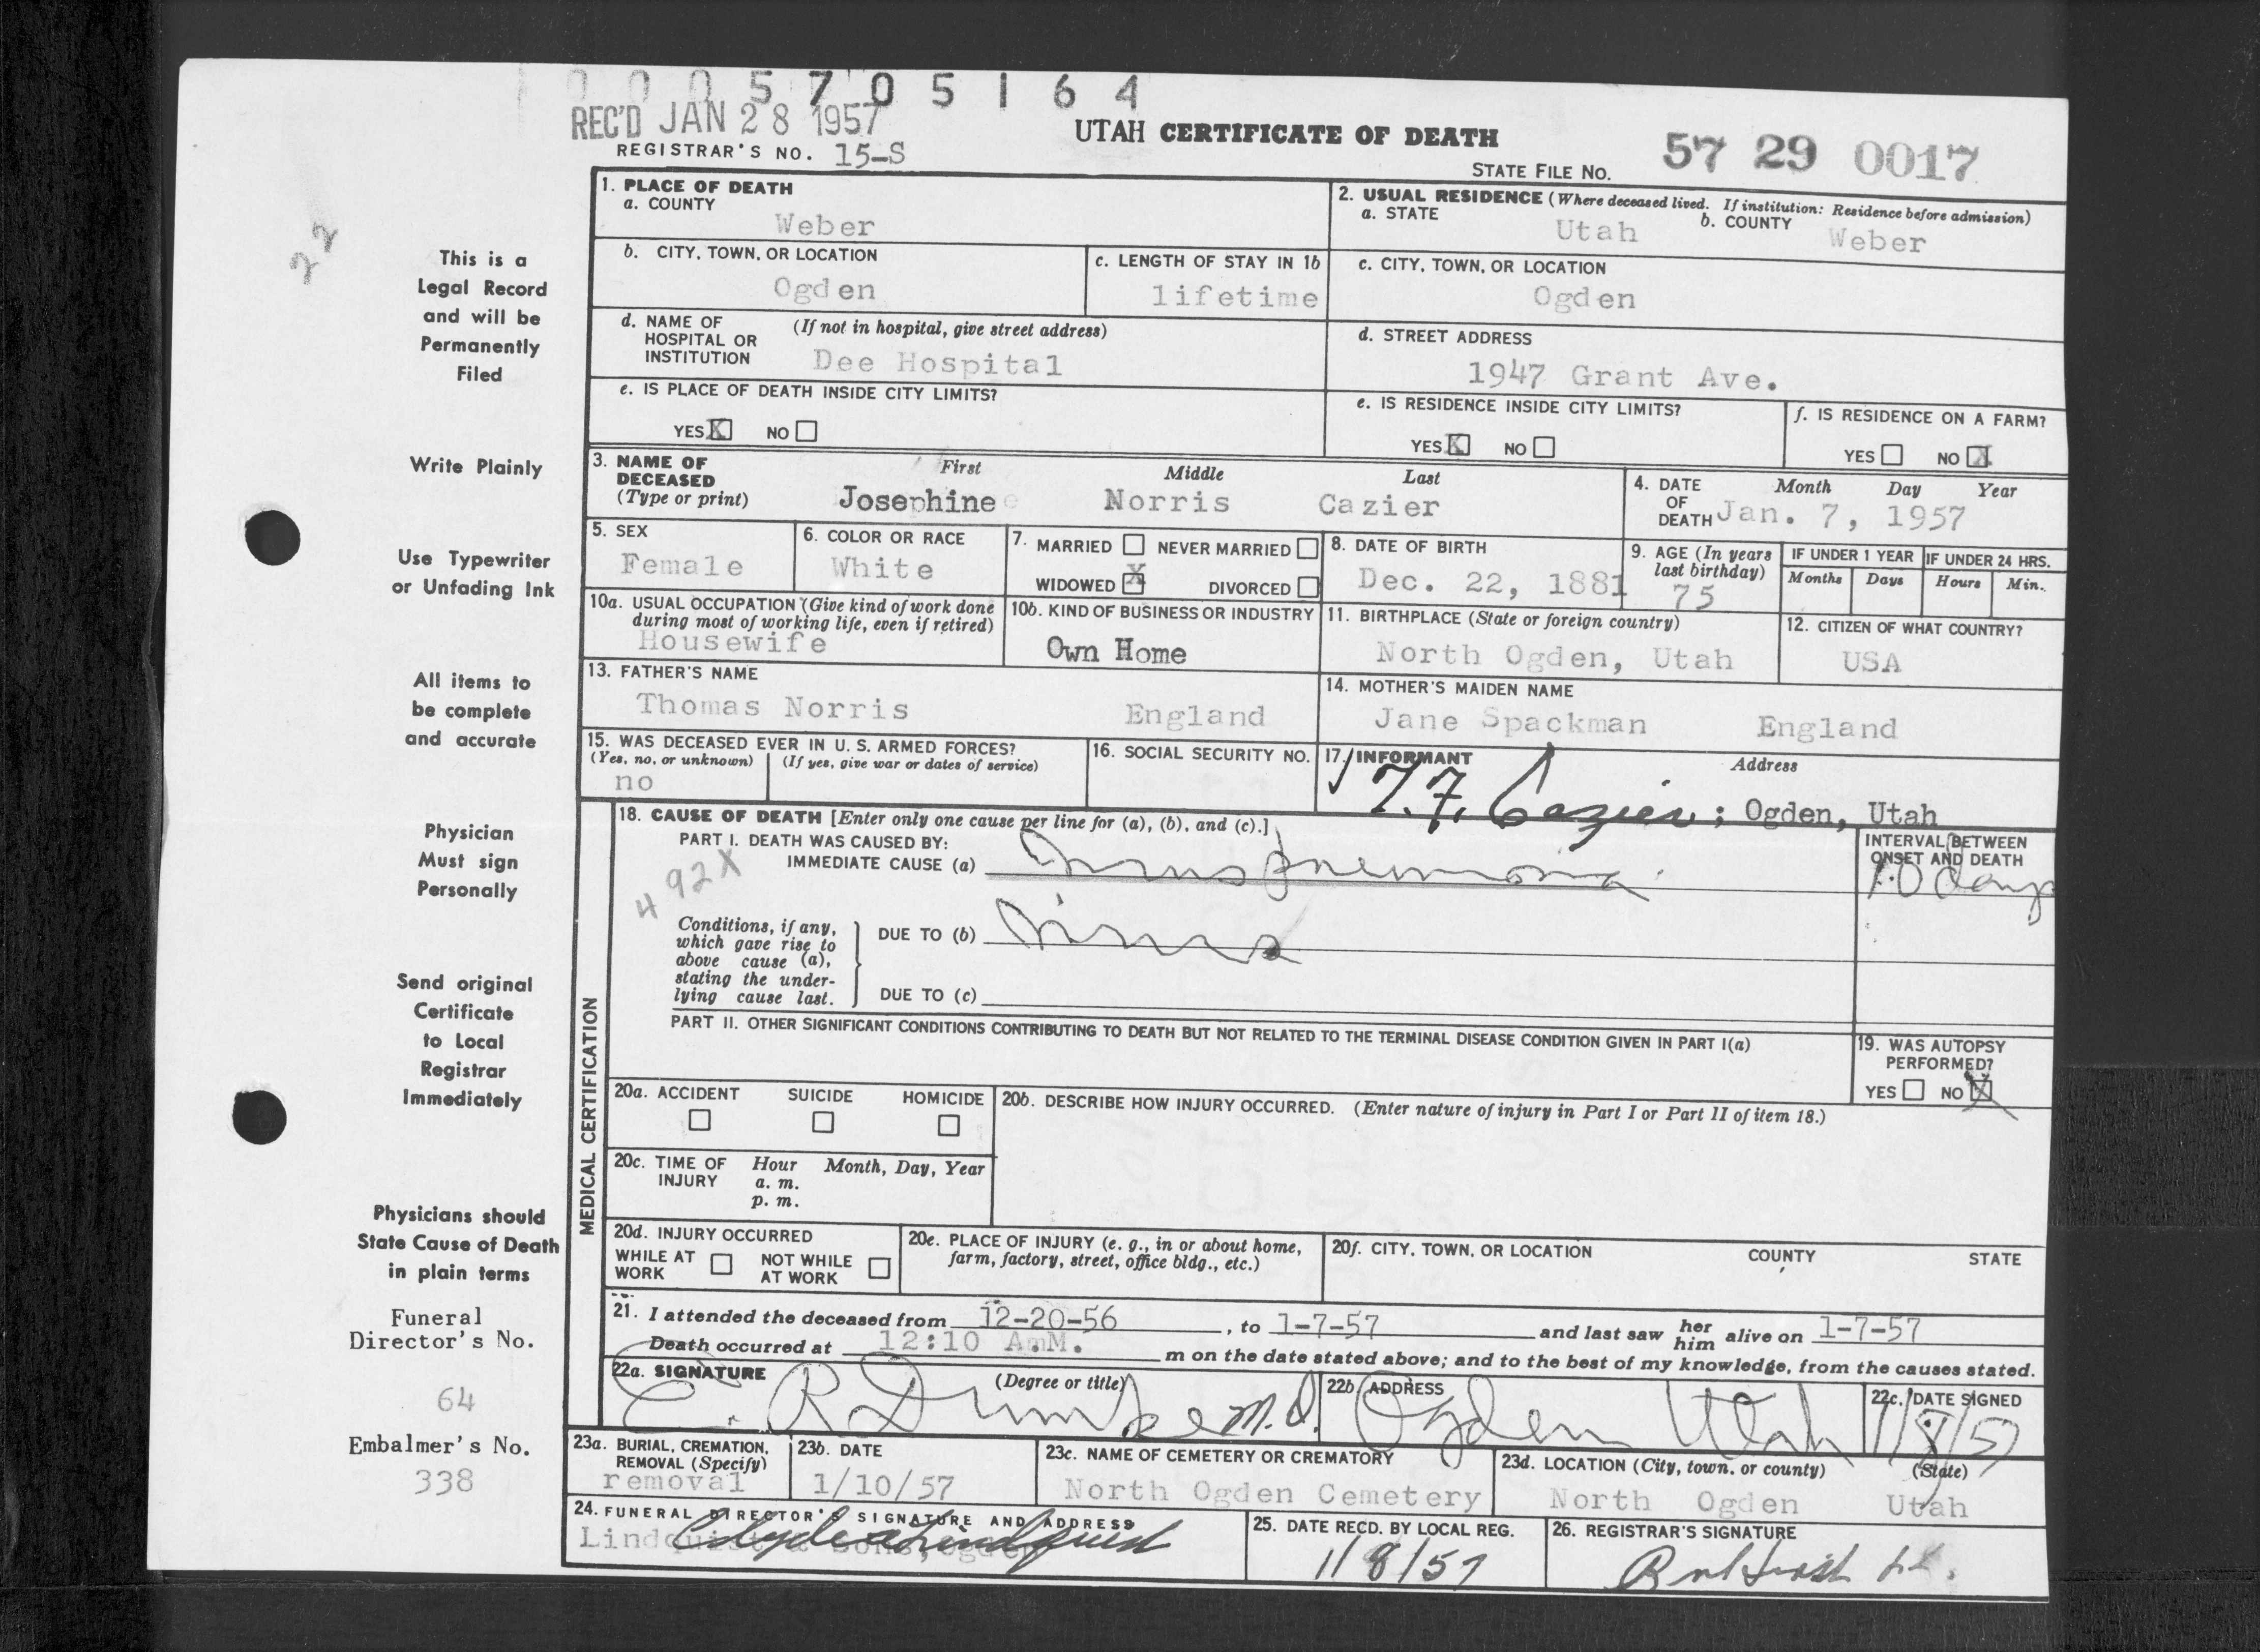 0005705164
REC'D JAN 28 1957
REGISTRAR'S NO. 15-S
UTAH CERTIFICATE OF DEATH
STATE FILE NO. 57 29 0017
22
This is a
Legal Record
and will be
Permanently
Filed
Write Plainly
Use Typewriter
or Unfading Ink
All items to
be complete
and accurate
Physician
Must sign
Personally
Send original
Certificate
to Local
Registrar
Immediately
Physicians should
State Cause of Death
in plain terms
Funeral
Director's No.
64
Embalmer's No.
338
1. PLACE OF DEATH
a. COUNTY
Weber
2. USUAL RESIDENCE (Where deceased lived. If institution: Residence before admission)
a. STATE Utah b. COUNTY Weber
b. CITY, TOWN, OR LOCATION
Ogden
c. LENGTH OF STAY IN 1b
lifetime
c. CITY, TOWN, OR LOCATION
Ogden
d. NAME OF HOSPITAL OR INSTITUTION (If not in hospital, give street address)
Dee Hospital
d. STREET ADDRESS
1947 Grant Ave.
e. IS PLACE OF DEATH INSIDE CITY LIMITS?
YES X NO
e. IS RESIDENCE INSIDE CITY LIMITS?
YES X NO
f. IS RESIDENCE ON A FARM?
YES NO X
3. NAME OF DECEASED (Type or print)
First Middle Last
Josephine Norris Cazier
4. DATE OF DEATH Month Day Year
Jan. 7, 1957
5. SEX
Female
6. COLOR OR RACE
White
7. MARRIED NEVER MARRIED
WIDOWED X DIVORCED
8. DATE OF BIRTH
Dec. 22, 1881
9. AGE (In years last birthday)
75
IF UNDER 1 YEAR IF UNDER 24 HRS.
Months Days Hours Min.
10a. USUAL OCCUPATION (Give kind of work done during most of working life, even if retired)
Housewife
10b. KIND OF BUSINESS OR INDUSTRY
Own Home
11. BIRTHPLACE (State or foreign country)
North Ogden, Utah
12. CITIZEN OF WHAT COUNTRY?
USA
13. FATHER'S NAME
Thomas Norris England
14. MOTHER'S MAIDEN NAME
Jane Spackman England
15. WAS DECEASED EVER IN U. S. ARMED FORCES?
(Yes, no, or unknown) (If yes, give war or dates of service)
no
16. SOCIAL SECURITY NO.
17. INFORMANT Address
T. F. Cazier; Ogden, Utah
MEDICAL CERTIFICATION
18. CAUSE OF DEATH [Enter only one cause per line for (a), (b), and (c).]
PART I. DEATH WAS CAUSED BY:
IMMEDIATE CAUSE (a) Virus pneumonia
INTERVAL BETWEEN ONSET AND DEATH
10 days
492X
Conditions, if any, which gave rise to above cause (a), stating the underlying cause last.
DUE TO (b) Virus
DUE TO (c)
PART II. OTHER SIGNIFICANT CONDITIONS CONTRIBUTING TO DEATH BUT NOT RELATED TO THE TERMINAL DISEASE CONDITION GIVEN IN PART I(a)
19. WAS AUTOPSY PERFORMED?
YES NO X
20a. ACCIDENT SUICIDE HOMICIDE
20b. DESCRIBE HOW INJURY OCCURRED. (Enter nature of injury in Part I or Part II of item 18.)
20c. TIME OF INJURY Hour Month, Day, Year
a. m.
p. m.
20d. INJURY OCCURRED
WHILE AT WORK NOT WHILE AT WORK
20e. PLACE OF INJURY (e. g., in or about home, farm, factory, street, office bldg., etc.)
20f. CITY, TOWN, OR LOCATION COUNTY STATE
21. I attended the deceased from 12-20-56, to 1-7-57 and last saw her him alive on 1-7-57
Death occurred at 12:10 A.M. m on the date stated above; and to the best of my knowledge, from the causes stated.
22a. SIGNATURE (Degree or title)
E. R. Dumke M.D.
22b. ADDRESS
Ogden Utah
22c. DATE SIGNED
1/8/57
23a. BURIAL, CREMATION, REMOVAL (Specify)
removal
23b. DATE
1/10/57
23c. NAME OF CEMETERY OR CREMATORY
North Ogden Cemetery
23d. LOCATION (City, town, or county) (State)
North Ogden Utah
24. FUNERAL DIRECTOR'S SIGNATURE AND ADDRESS
Lindquist & Sons, Ogden
Clyde Lindquist
25. DATE RECD. BY LOCAL REG.
1/8/57
26. REGISTRAR'S SIGNATURE